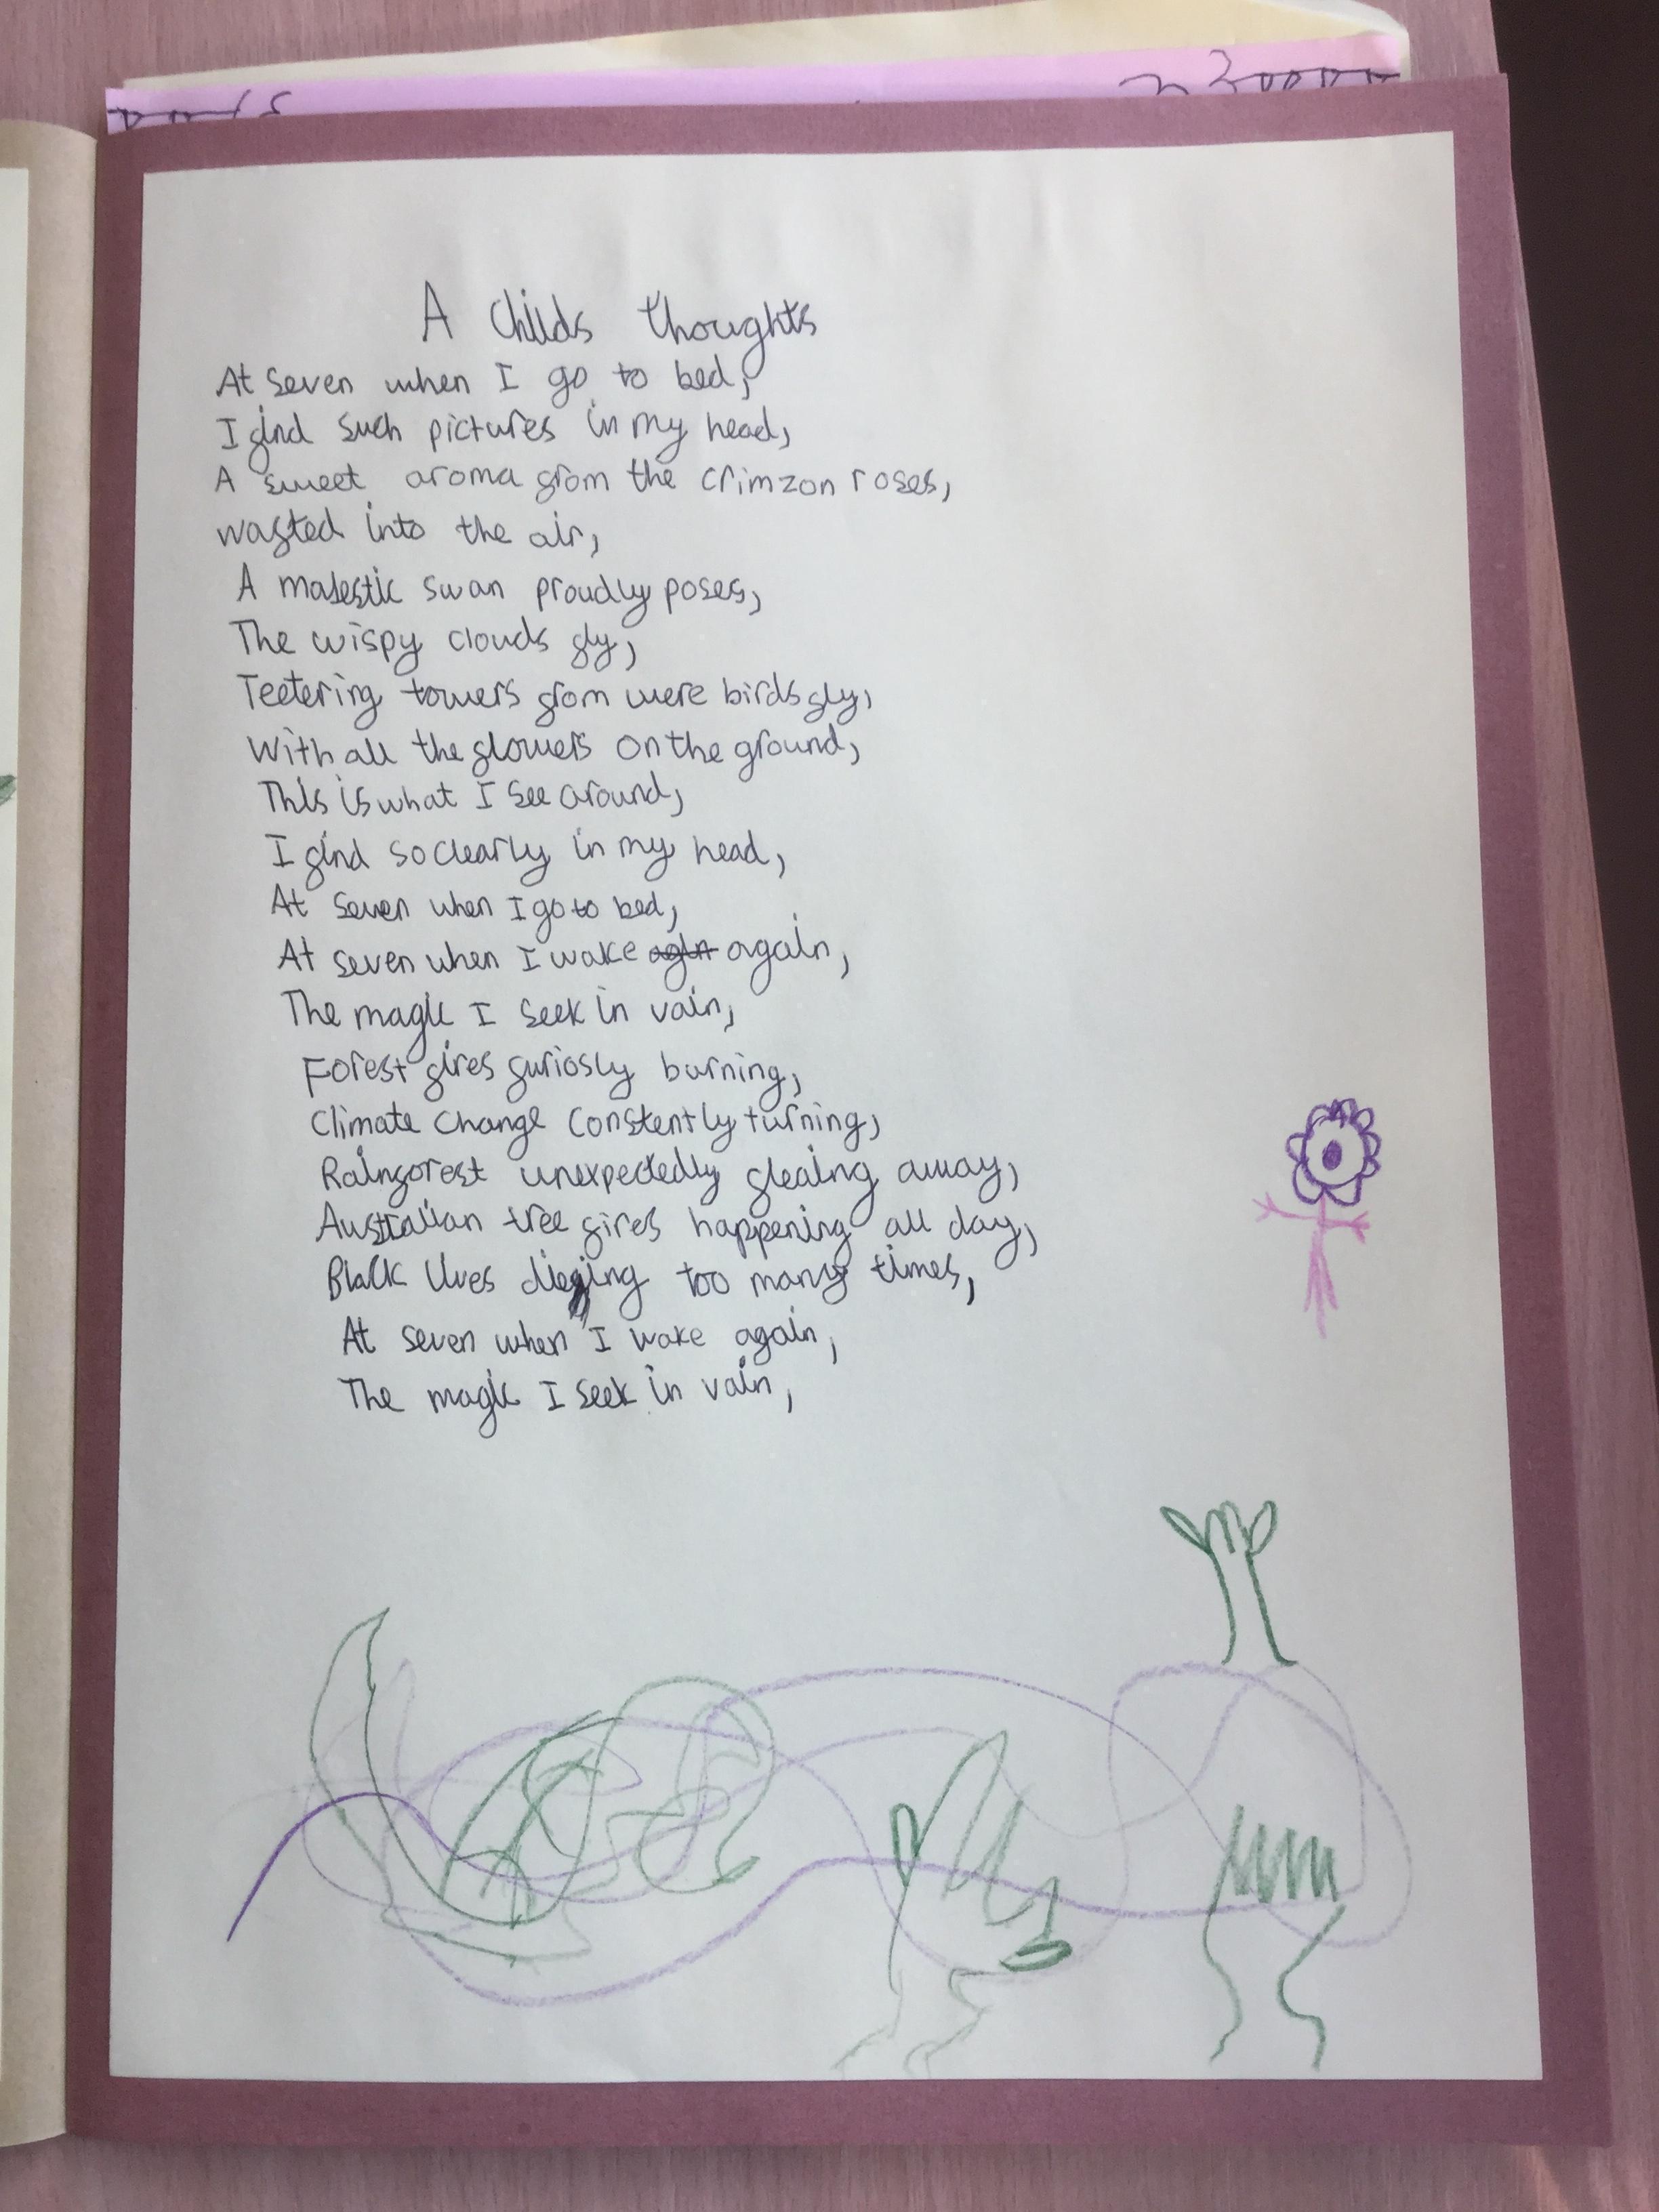 A Childs thoughts
At seven when I go to bed,
I find such pictures in my head,
A sweet aroma from the crimzon roses,
wafted into the air,
A majestic swan proudly poses,
The wispy clouds fly,
Teetering towers from were birds fly,
With all the flowers on the ground,
This is what I see around,
I find so clearly in my head,
At seven when I go to bed,
At seven when I wake again,
The magic I seek in vain,
Forest fires furiosly burning,
Climate change constently turning,
Rainforest unexpectedly fleaing away,
Australian tree fires happening all day,
Black lives dieing too many times,
At seven when I wake again,
The magic I seek in vain,